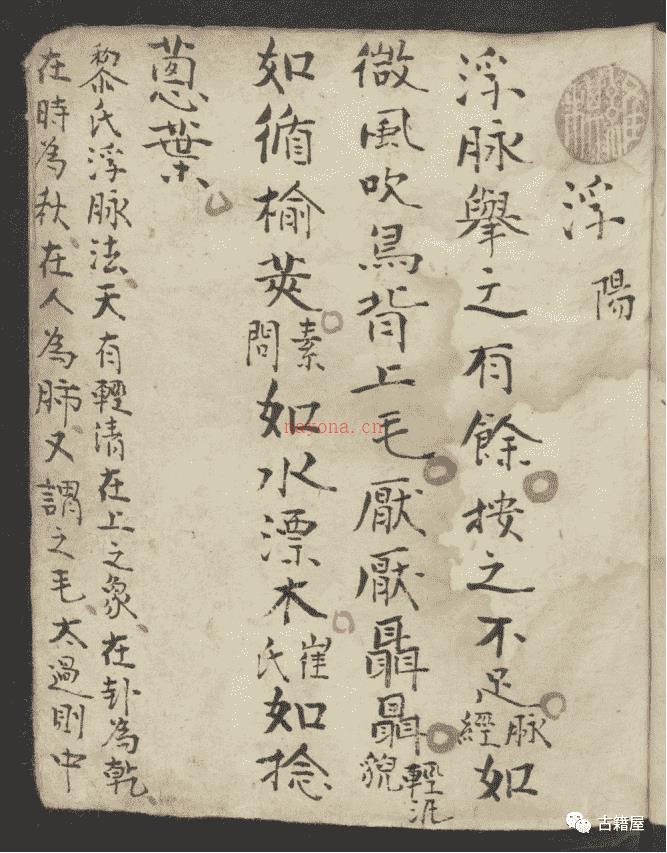 浮 陽
浮脉舉之有餘按之不足脉經如
微風吹鳥背上毛厭厭聶聶輕汎貌
如循榆莢素問如水漂木崔氏如捻
蔥葉
黎氏浮脉法、天有輕清在上之象、在卦為乾、
在時為秋、在人為肺、又謂之毛、太過則中
nayona.cn
古籍屋